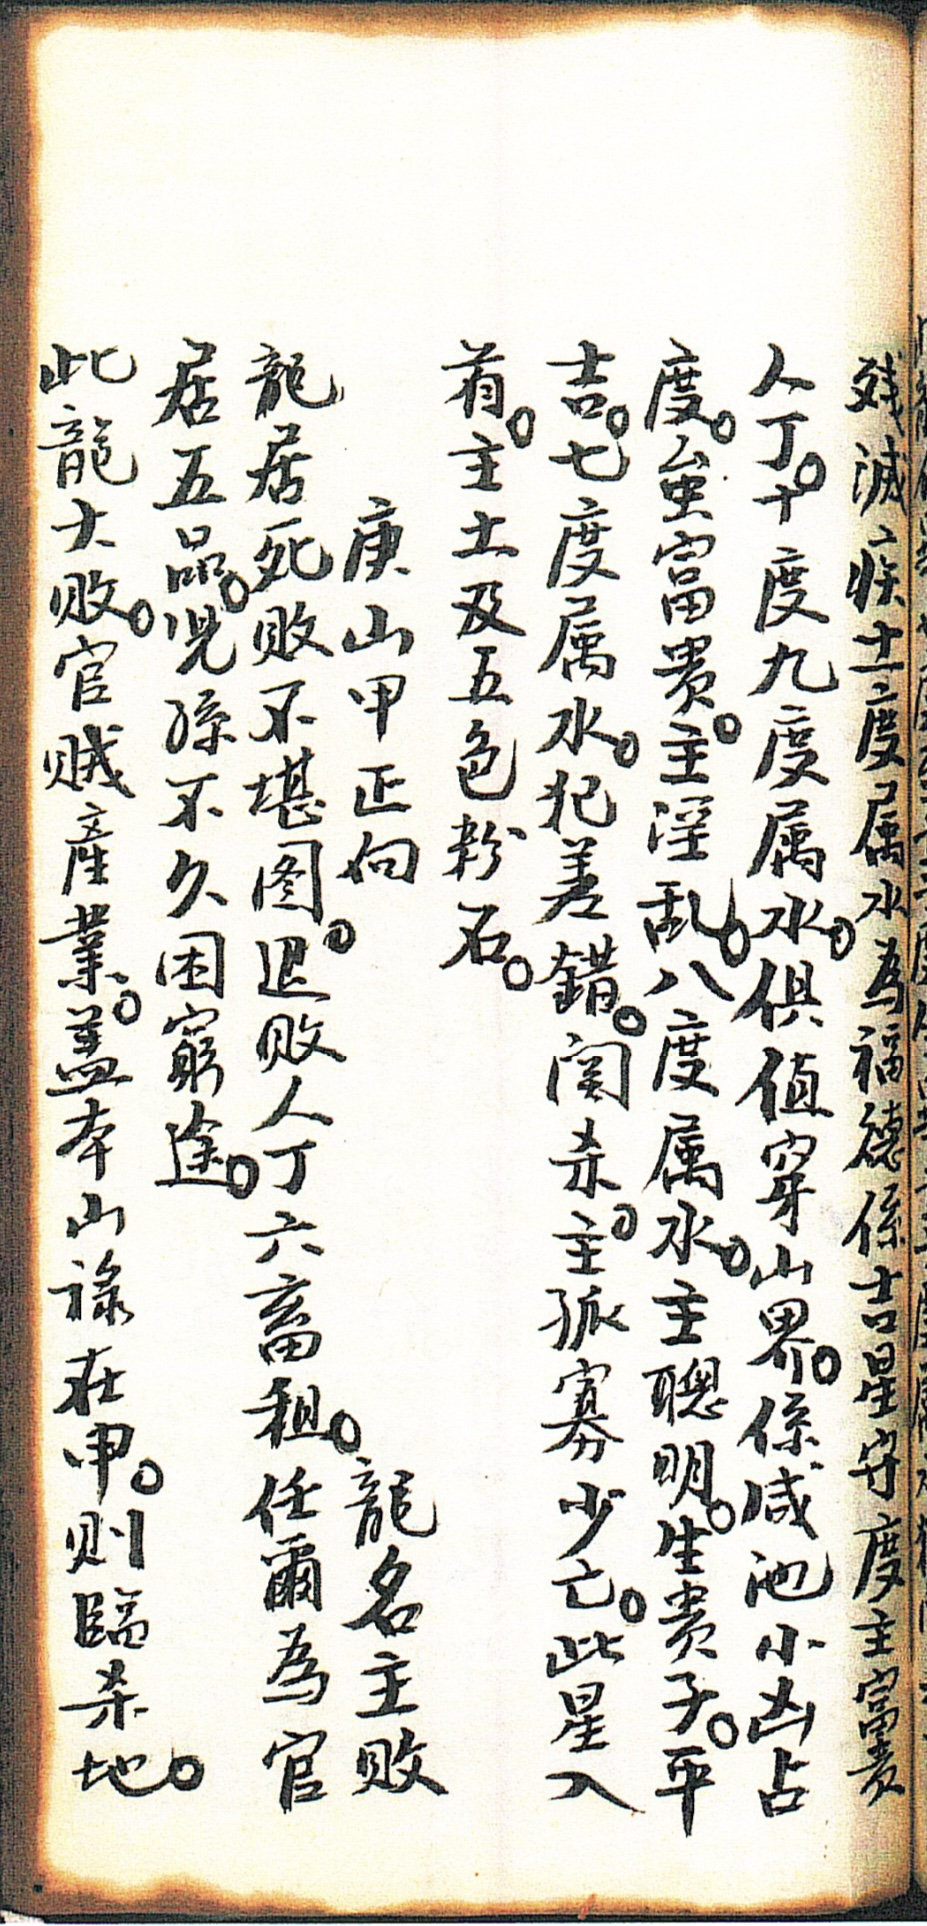 残滅疾十一度属水為福德係吉星守度主富贵
人丁。十度九度属水。俱值穿山界。係咸池小凶占
度。虽富贵。主淫乱。八度属水。主聰明。生贵子。平
吉。七度属水。犯差錯。関杀。主孤寡少亡。此星入
有。主土及五色粉石。
庚山甲正向　龍名主败
龍居死败不堪图。退败人丁六畜租。任爾為官
居五品。児孫不久困窮途。
此龍大败。官贼產業。蓋本山禄在申。则臨杀地。